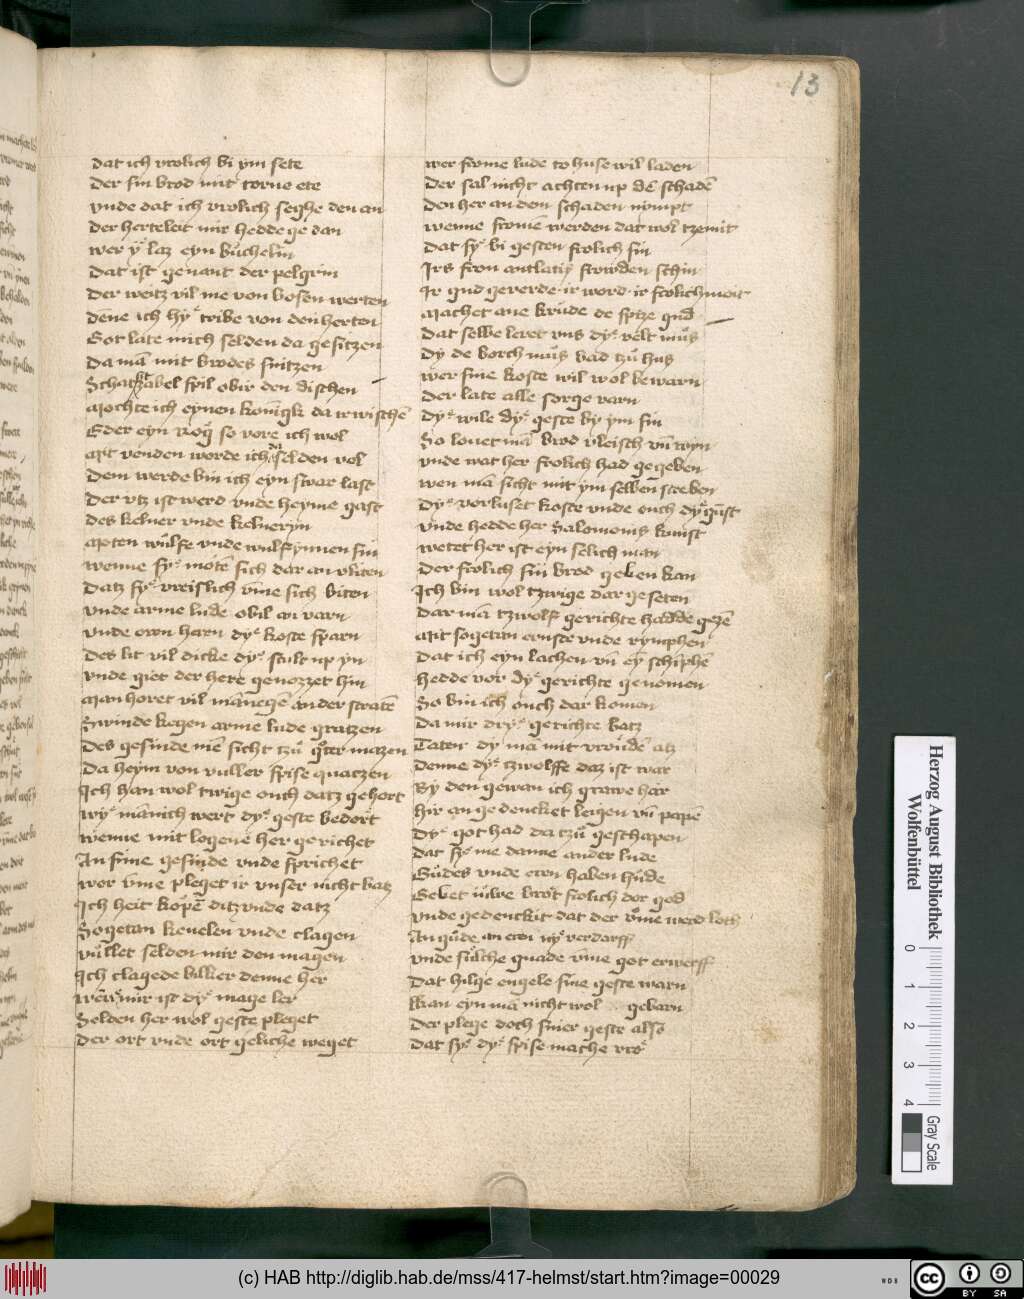 13
dat ich vrolich bi ym sete
Der sin brod mit torne ete
vnde dat ich vrolich seghe den an
Der herteleit mir hedde ge dan
wer yͤ laz eyn buchelin
Dat ist genant der pelgrim
Der weitz vil me von bosen werten
Dēne ich hyͤ tribe von den herten
Got late mich selden da gesitzen
Da mā mit brodes snitzen
Schatzabel spil obir den dischen
Mochte ich eynen konigk da irwischē
Eder eyn roch so vore ich wol
Mit venden worde ich selden vol
Dem werde bin ich eyn swar last
Der vtz ist werd vnde heyme gast
Des kelner vnde kelnerym
Moten wulfe vnde wulfynnen sin
wenne syͤ motē sich dar an vliten
Datz syͤ vreislich vme sich biten
vnde arme lude obil an varn
vnde eren harn dyͤ koste sparn
Des lit vil dicke dyͤ scult up yn
vnde giet der here genozzet hin
Man horet vil mānegē an der stratē
Swinde kegen arme lude gratzen
Des gesinde me sicht tzu goter matzen
Da heym von vuller spise quatzen
Ich han wol twige ouch datz gehort
wyͤ mānich wert dyͤ geste bedort
wenne mit logene her ge richet
An sime gesinde vnde sprichet
wor vme pleget ir vnser nicht batz
Ich heit kopē ditz vnde datz
Sogetan keuelen vnde clagen
vullet selden mir den magen
Ich clagede billier denne her
wēne mir ist dyͤ mage ler
Selden her wol geste pleget
Der ort vnde ort geliche weget
wer frome lude to huse wil laden
Der sal nicht achten up dē schadē
Den her an dem schaden nympt
wenne fromē werden dat wol tzemit
Dat syͤ bi gesten frolich sin
Irs fron antlatis frowden schin
Ir gud geverde ir word ir frolichmoit
Machet ane krude de spize gud
Dat selbe leret vns dyͤ velt mus
Dy de borch mus bad tzu hus
wer sine koste wil wol bewarn
Der late alle sorge varn
Dyͤ wile dyͤ geste by ym sin
So louet mā brod vleisch vn̄ wyn
vnde wat her frolich had gegeben
wen mā sicht mit ym selben streben
Dyͤ vorluset koste vnde ouch dyͤ gunst
vnde hedde her Salomonis kunst
wetet her ist eyn selich man
Der frolich sin brod geben kan
Ich bin wol tzwige dar geseten
Dar mā tzwolf gerichte hadde gezē
Mit sogetan ernste vnde rymphen
Dat ich eyn lachen vn̄ ey schiphē
hedde vor dyͤ gerichte genomen
So bin ich ouch dar komen
Da mir dryͤ gerichte batz
Taten dy mā mit vroudē atz
Denne dyͤ tzwolffe daz ist war
By den gewan ich grawe har
hir an ge dencket leigen vn̄ papē
Dyͤ got had da tzu geschapen
Dat syͤ me danne ander lude
Gudes vnde eren haben hude
Gebet uwe brot frolich dor god
vnde gedenckit dat der rome werd loth
An gude an eren nyͤ verdarff
vnde sulche gnade vme got erwerff
Dat hilge engele sine geste warn
Kan eyn mā nicht wol gebarn
Der plege doch siner geste also
Dat syͤ dyͤ spise mache vro
Herzog August Bibliothek
Wolfenbüttel
0 1 2 3 4
Gray Scale
(c) HAB http://diglib.hab.de/mss/417-helmst/start.htm?image=00029
WDB
cc BY SA